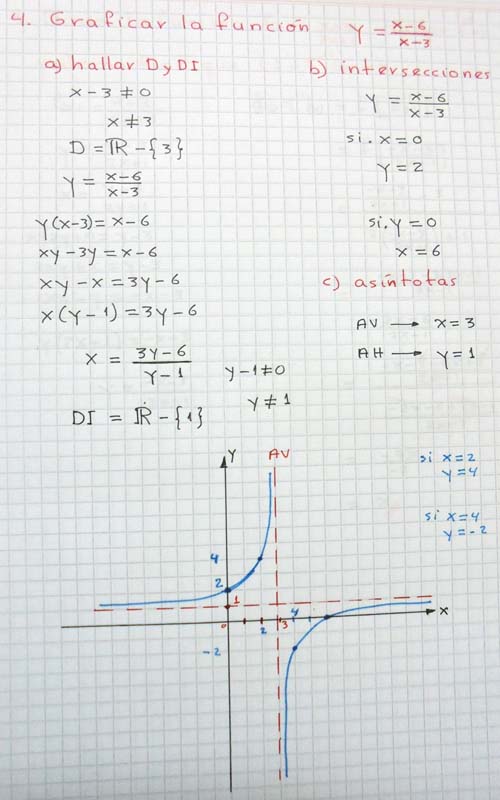 4. Graficar la función y = (x-6)/(x-3)
a) hallar D y DI
x-3 ≠ 0
x ≠ 3
D = ℝ - {3}
y = (x-6)/(x-3)
y(x-3) = x-6
xy-3y = x-6
xy-x = 3y-6
x(y-1) = 3y-6
x = (3y-6)/(y-1)
y-1 ≠ 0
y ≠ 1
DI = ℝ - {1}
b) intersecciones
y = (x-6)/(x-3)
si. x = 0
y = 2
si. y = 0
x = 6
c) asíntotas
AV → x = 3
AH → y = 1
si x = 2
y = 4
si x = 4
y = -2
y
AV
4
2
1
0
2
3
4
x
-2